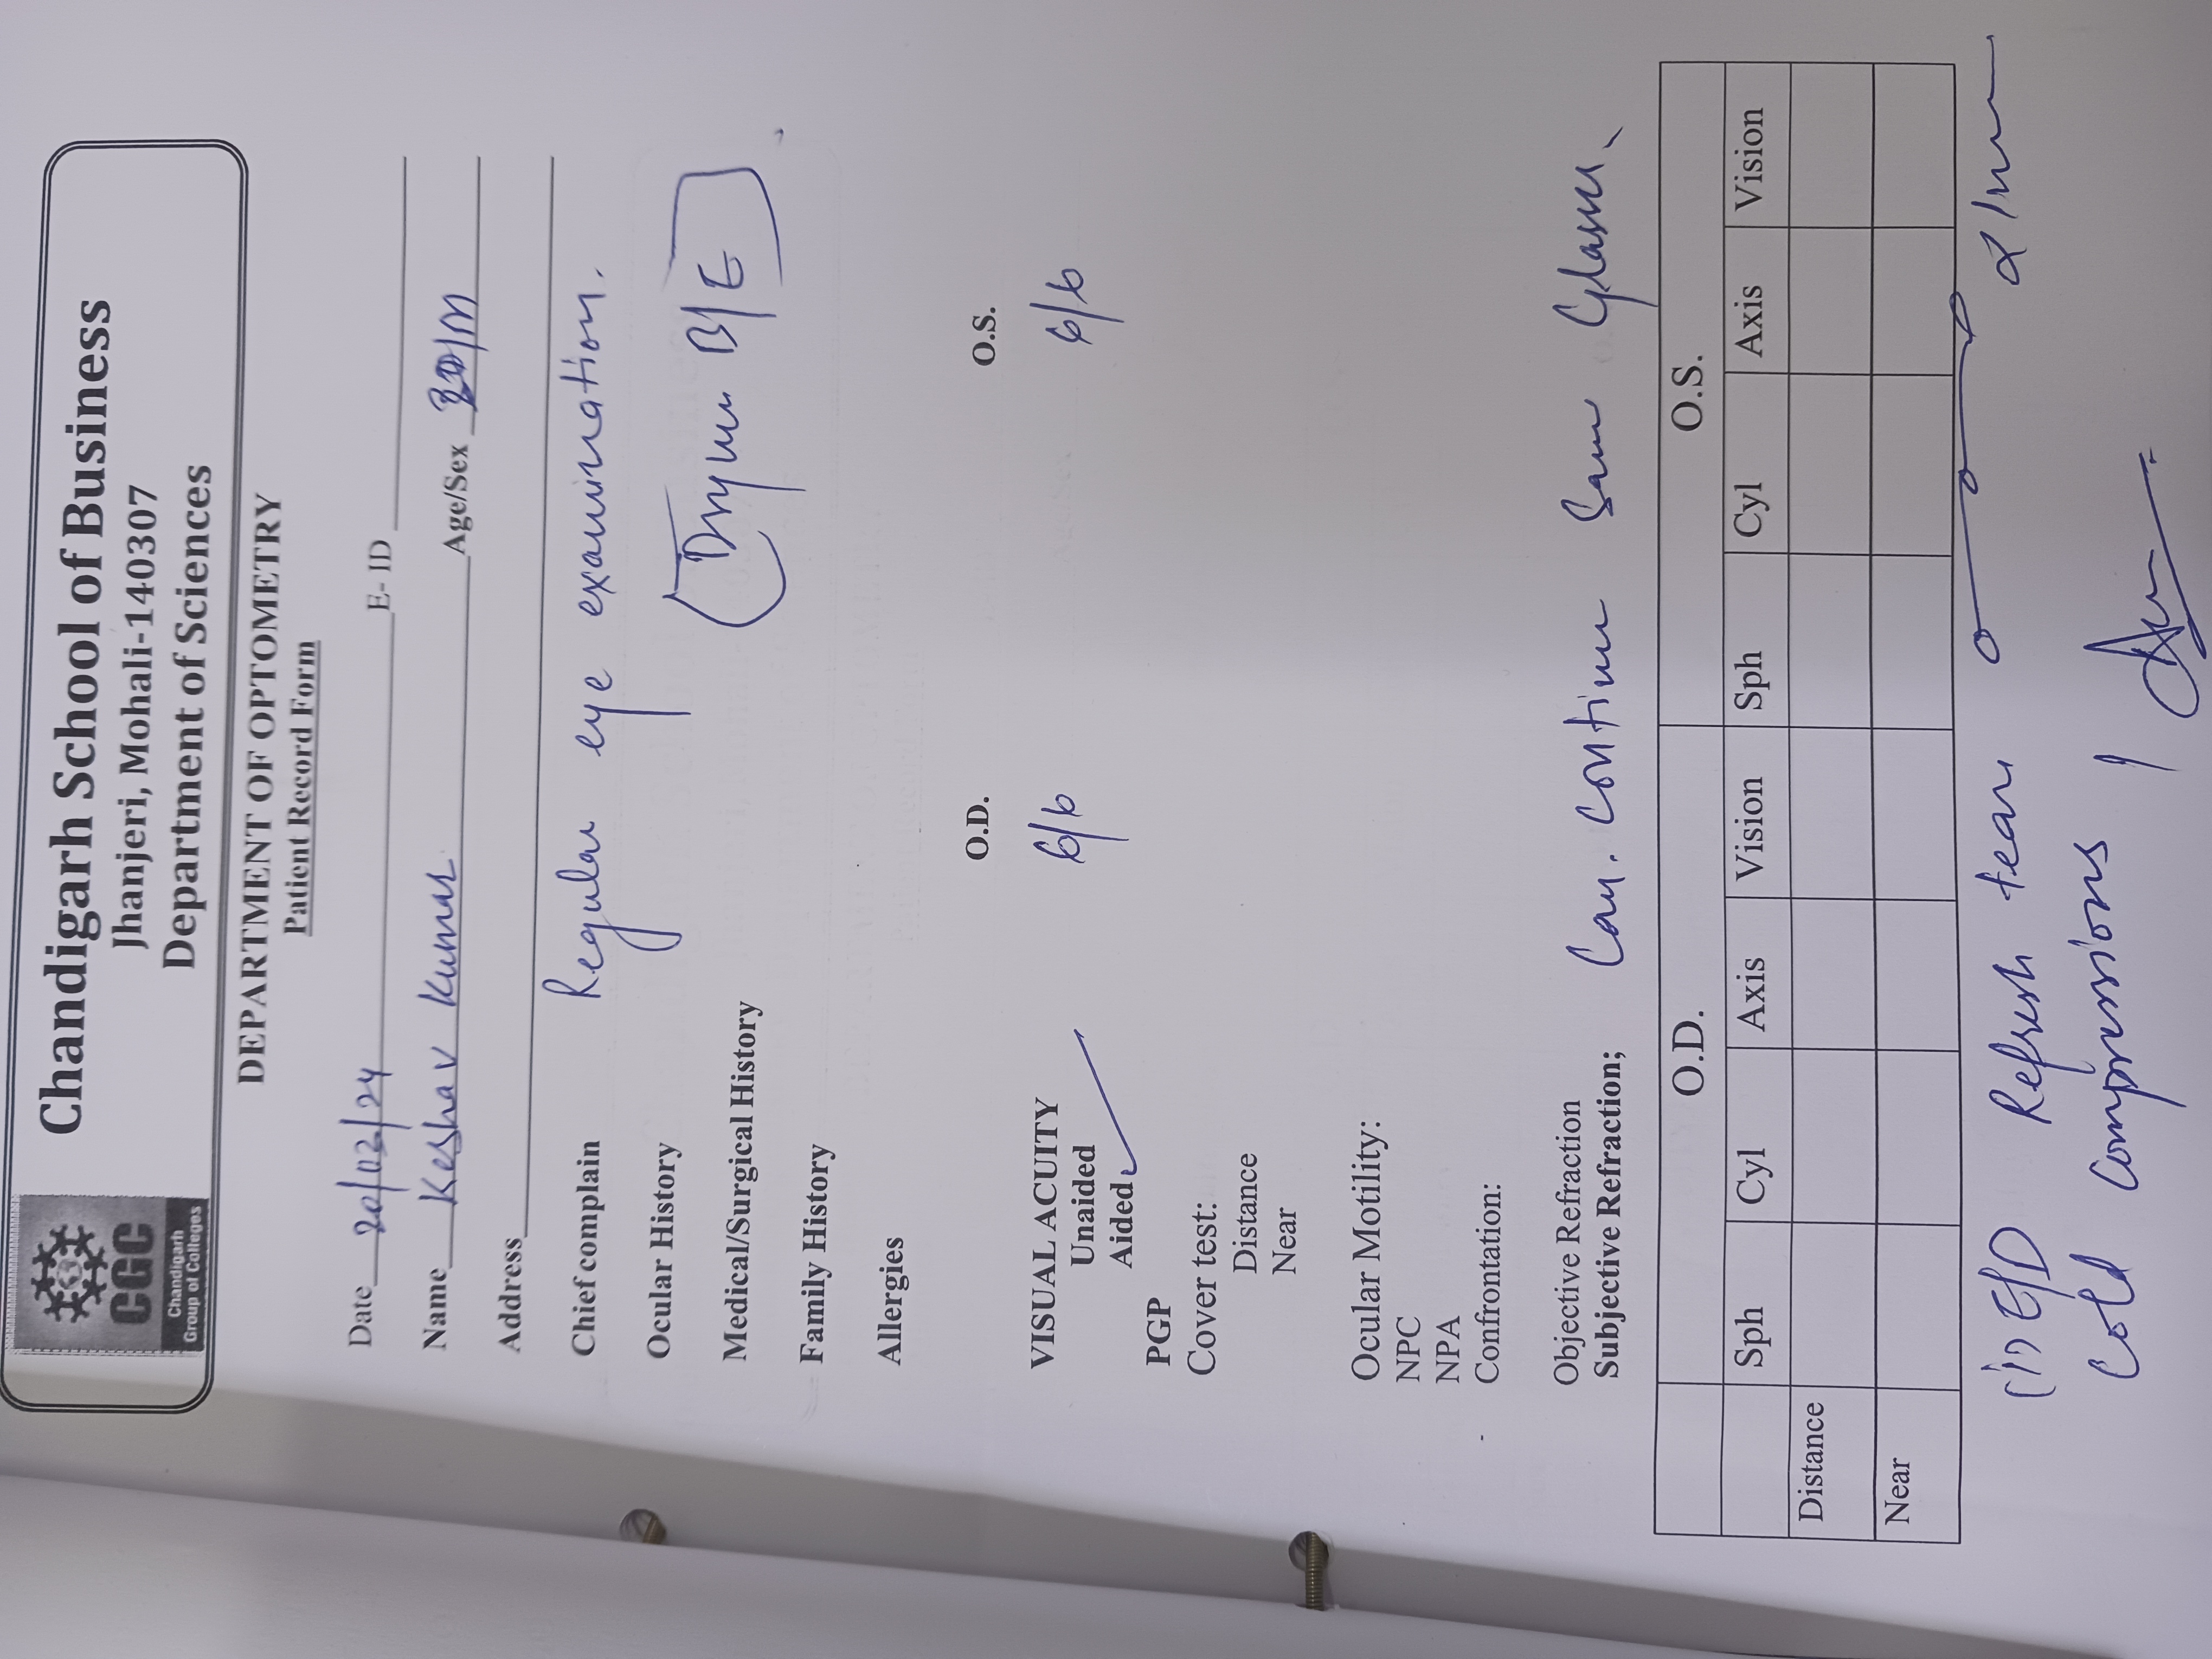 CGC
Chandigarh
Group of Colleges
Chandigarh School of Business
Jhanjeri, Mohali-140307
Department of Sciences
DEPARTMENT OF OPTOMETRY
Patient Record Form
Date 20/02/24 E- ID
Name Keshav Kumar Age/Sex /M
Address
Chief complain Regular eye examination.
Ocular History
B/E
Medical/Surgical History
Family History
Allergies
O.D. O.S.
VISUAL ACUITY 6/6 6/6
Unaided
Aided ✓
PGP
Cover test:
Distance
Near
Ocular Motility:
NPC
NPA
Confrontation:
Objective Refraction
Subjective Refraction; Can. continue Same Glasses.
O.D. O.S.
Sph Cyl Axis Vision Sph Cyl Axis Vision
Distance
Near
(1) E/D Refresh tears
Cold compressions